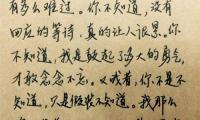 有多么难过。你不知道,没有
回应的等待,真的让人很累。你
不知道,我是鼓起了多大的勇气,
才敢念念不忘。又或者,你不是不
知道,只是假装不知道。我那么